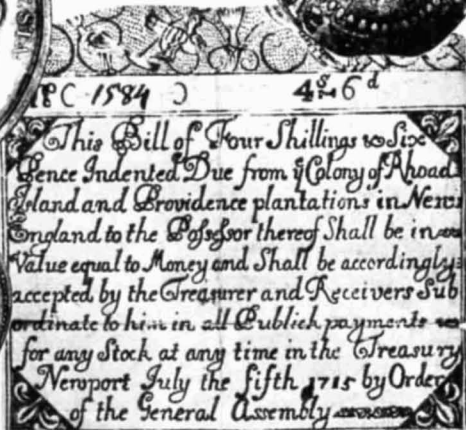 (1584) 4s 6d
This Bill of Four Shillings & Six
Pence Indented Due from ye Colony of Rhoad
Island and Providence plantations in New
England to the Possessor thereof Shall be in
Value equal to Money and Shall be accordingly
accepted by the Treasurer and Receivers Sub
ordinate to him in all Publick payments
for any Stock at any time in the Treasury
Newport July the fifth 1715 by Order
of the General Assembly